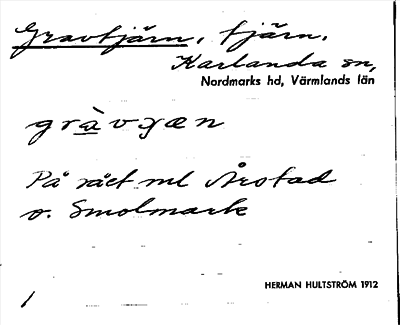 Gravtjärn, tjärn,
Karlanda sn,
Nordmarks hd, Värmlands län
På rået ml Årstad
o. Smolmark
HERMAN HULTSTRÖM 1912